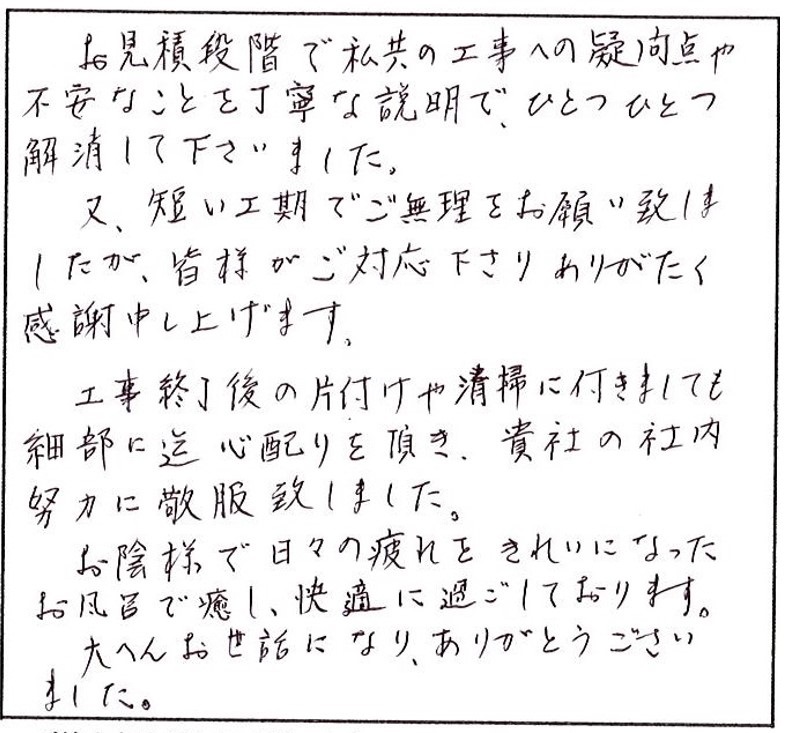 お見積段階で私共の工事への疑問点や
不安なことを丁寧な説明で、ひとつひとつ
解消して下さいました。
又、短い工期でご無理をお願い致しま
したが、皆様がご対応下さりありがたく
感謝申し上げます。
工事終了後の片付けや清掃に付きましても
細部に迄心配りを頂き、貴社の社内
努力に敬服致しました。
お陰様で日々の疲れをきれいになった
お風呂で癒し、快適に過ごしております。
大へんお世話になり、ありがとうござい
ました。